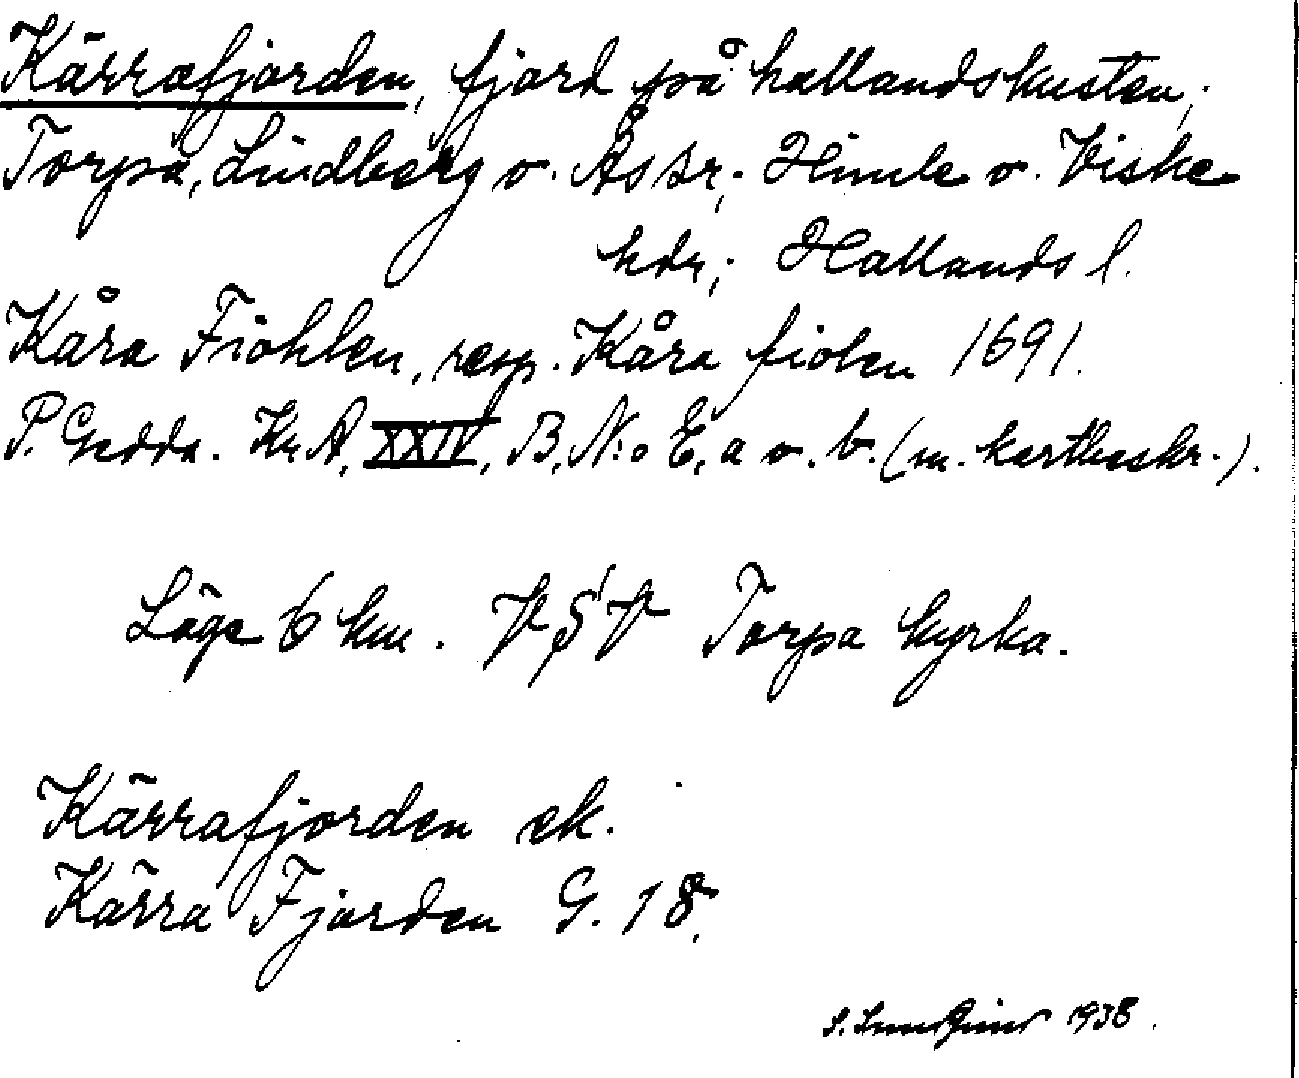 Kärrafjorden, fjord på hallandskusten;
Torpa, Lindberg o. Ås sr; Himle o. Viske
hdr; Hallands l.
Kåra Fiöhlen, resp. Kåra fiolen 1691.
P. Gedda. Kr. A. XXIV, B, N:o E, a o. b. (m. kartbeskr.).
Läge 6 km. VSV Torpa kyrka.
Kärrafjorden ek.
Kärra Fjorden G. 18.
S. 1938.